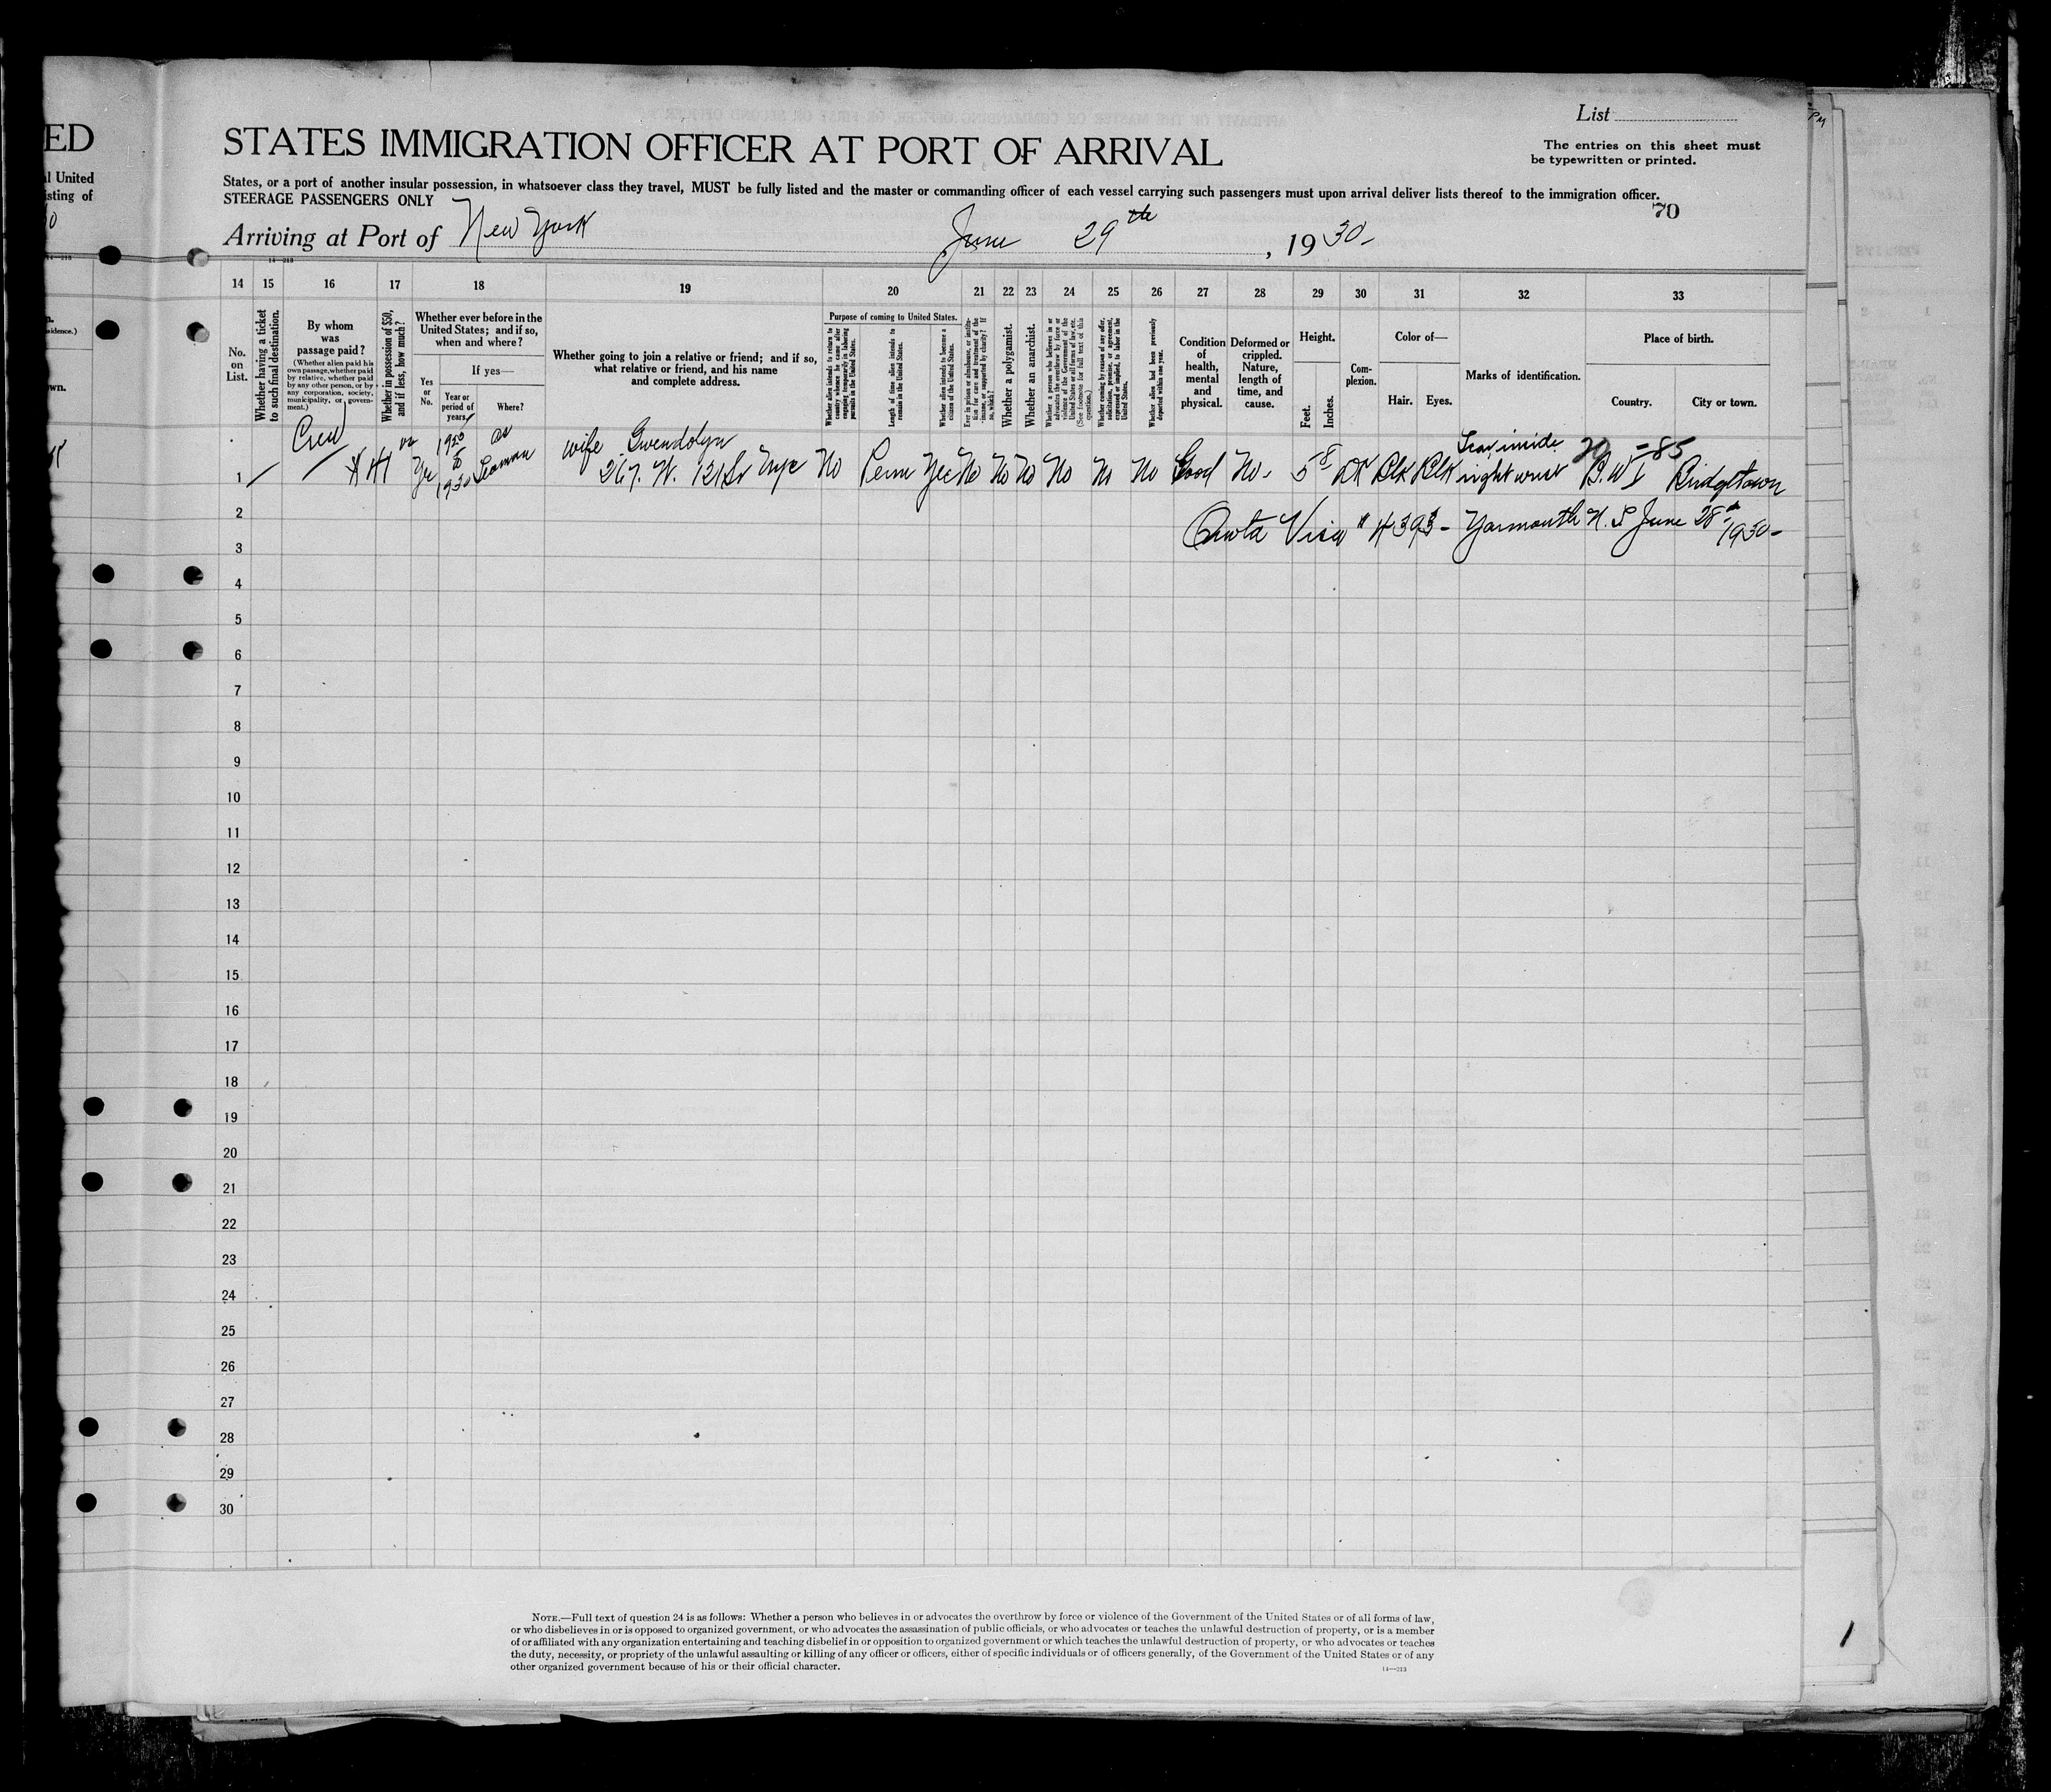 ED
List
STATES IMMIGRATION OFFICER AT PORT OF ARRIVAL
The entries on this sheet must
be typewritten or printed.
al United
isting of
States, or a port of another insular possession, in whatsoever class they travel, MUST be fully listed and the master or commanding officer of each vessel carrying such passengers must upon arrival deliver lists thereof to the immigration officer.
STEERAGE PASSENGERS ONLY
70
Arriving at Port of New York June 29th, 1930-
14—213
14 15 16 17 18 19 20 21 22 23 24 25 26 27 28 29 30 31 32 33
No. on List.
Whether having a ticket to such final destination.
By whom was passage paid?
(Whether alien paid his own passage, whether paid by relative, whether paid by any other person, or by any corporation, society, municipality, or government.)
Whether in possession of $50, and if less, how much?
Whether ever before in the United States; and if so, when and where?
Yes or No.
If yes—
Year or period of years.
Where?
Whether going to join a relative or friend; and if so, what relative or friend, and his name and complete address.
Purpose of coming to United States.
Whether alien intends to return to country whence he came after engaging temporarily in laboring pursuits in the United States.
Length of time alien intends to remain in the United States.
Whether alien intends to become a citizen of the United States.
Ever in prison or almshouse, or institution for care and treatment of the insane, or supported by charity? If so, which?
Whether a polygamist.
Whether an anarchist.
Whether a person who believes in or advocates the overthrow by force or violence of the Government of the United States or all forms of law, etc. (See footnote for full text of this question.)
Whether coming by reason of any offer, solicitation, promise, or agreement, expressed or implied, to labor in the United States.
Whether alien had been previously deported within one year.
Condition of health, mental and physical.
Deformed or crippled. Nature, length of time, and cause.
Height.
Feet.
Inches.
Complexion.
Color of—
Hair. Eyes.
Marks of identification.
Place of birth.
Country. City or town.
Crew 1920 as wife Gwendolyn Scar inside 20 -85
1 Yes to 1930 Seaman 267. W. 121 St NYC No Perm Yes No No No No No No Good No- 5 8 DK Blk Blk right wrist B.W.I Bridgetown
2 Quota Visa # 4393- Yarmouth N.S June 28th 1930-
3
4
5
6
7
8
9
10
11
12
13
14
15
16
17
18
19
20
21
22
23
24
25
26
27
28
29
30
NOTE.—Full text of question 24 is as follows: Whether a person who believes in or advocates the overthrow by force or violence of the Government of the United States or of all forms of law,
or who disbelieves in or is opposed to organized government, or who advocates the assassination of public officials, or who advocates or teaches the unlawful destruction of property, or is a member
of or affiliated with any organization entertaining and teaching disbelief in or opposition to organized government or which teaches the unlawful destruction of property, or who advocates or teaches
the duty, necessity, or propriety of the unlawful assaulting or killing of any officer or officers, either of specific individuals or of officers generally, of the Government of the United States or of any
other organized government because of his or their official character.
14—213
1